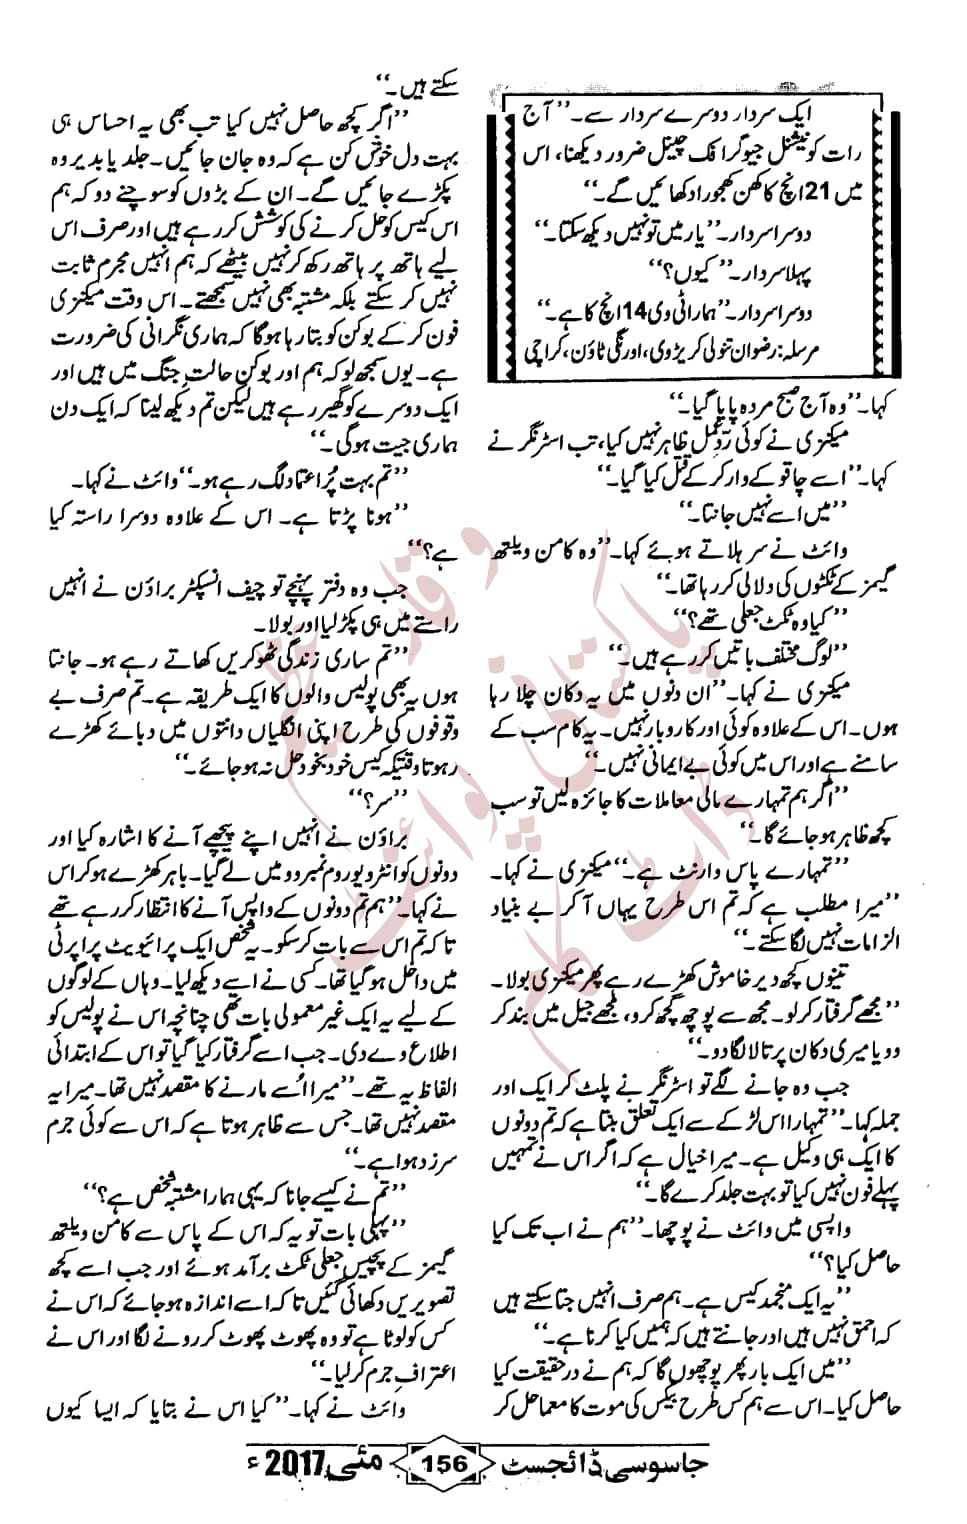 ایک سردار دوسرے سردار سے۔ ’’آج
رات کو نیشنل جیوگرافک چینل ضرور دیکھنا، اس
میں 21 انچ کا کھن کھجورا دکھائیں گے۔‘‘
دوسرا سردار۔ ’’یار میں تو نہیں دیکھ سکتا۔‘‘
پہلا سردار۔ ’’کیوں؟‘‘
دوسرا سردار۔ ’’ہمارا ٹی وی 14 انچ کا ہے۔‘‘
مرسلہ: رضوان تنولی کریڑوی، اورنگی ٹاؤن، کراچی
کہا۔ ’’وہ آج صبح مردہ پایا گیا۔‘‘
میکنزی نے کوئی ردِعمل ظاہر نہیں کیا، تب اسٹرنگر نے
کہا۔ ’’اسے چاقو کے وار کر کے قتل کیا گیا۔‘‘
’’میں اسے نہیں جانتا۔‘‘
وائٹ نے سر ہلاتے ہوئے کہا۔ ’’وہ کامن ویلتھ
گیمز کے ٹکٹوں کی دلالی کر رہا تھا۔‘‘
’’کیا وہ ٹکٹ جعلی تھے؟‘‘
’’لوگ مختلف باتیں کر رہے ہیں۔‘‘
میکنزی نے کہا۔ ’’ان دنوں میں یہ دکان چلا رہا
ہوں۔ اس کے علاوہ کوئی اور کاروبار نہیں۔ یہ کام سب کے
سامنے ہے اور اس میں کوئی بے ایمانی نہیں۔‘‘
’’اگر ہم تمہارے مالی معاملات کا جائزہ لیں تو سب
کچھ ظاہر ہو جائے گا۔‘‘
’’تمہارے پاس وارنٹ ہے۔‘‘ میکنزی نے کہا۔
’’میرا مطلب ہے کہ تم اس طرح یہاں آ کر بے بنیاد
الزامات نہیں لگا سکتے۔‘‘
تینوں کچھ دیر خاموش کھڑے رہے پھر میکنزی بولا۔
’’مجھے گرفتار کر لو۔ مجھ سے پوچھ گچھ کرو، مجھے جیل میں بند کر
دو یا میری دکان پر تالا لگا دو۔‘‘
جب وہ جانے لگے تو اسٹرنگر نے پلٹ کر ایک اور
جملہ کہا۔ ’’تمہارا اس لڑکے سے ایک تعلق بنتا ہے کہ تم دونوں
کا ایک ہی وکیل ہے۔ میرا خیال ہے کہ اگر اس نے تمہیں
پہلے فون نہیں کیا تو بہت جلد کرے گا۔‘‘
واپسی میں وائٹ نے پوچھا۔ ’’ہم نے اب تک کیا
حاصل کیا؟‘‘
’’یہ ایک منجمد کیس ہے۔ ہم صرف انہیں جتا سکتے ہیں
کہ احمق نہیں ہیں اور جانتے ہیں کہ ہمیں کیا کرنا ہے۔‘‘
’’میں ایک بار پھر پوچھوں گا کہ ہم نے درحقیقت کیا
حاصل کیا۔ اس سے ہم کس طرح بیکس کی موت کا معما حل کر
سکتے ہیں۔‘‘
’’اگر کچھ حاصل نہیں کیا تب بھی یہ احساس ہی
بہت دل خوش کن ہے کہ وہ جان جائیں۔ جلد یا بدیر وہ
پکڑے جائیں گے۔ ان کے بڑوں کو سوچنے دو کہ ہم
اس کیس کو حل کرنے کی کوشش کر رہے ہیں اور صرف اس
لیے ہاتھ پر ہاتھ رکھ کر نہیں بیٹھے کہ ہم انہیں مجرم ثابت
نہیں کر سکتے بلکہ مشتبہ بھی نہیں سمجھتے۔ اس وقت میکنزی
فون کر کے بوکن کو بتا رہا ہو گا کہ ہماری نگرانی کی ضرورت
ہے۔ یوں سمجھ لو کہ ہم اور بوکن حالتِ جنگ میں ہیں اور
ایک دوسرے کو گھیر رہے ہیں لیکن تم دیکھ لینا کہ ایک دن
ہماری جیت ہو گی۔‘‘
’’تم بہت پُر اعتماد لگ رہے ہو۔‘‘ وائٹ نے کہا۔
’’ہونا پڑتا ہے۔ اس کے علاوہ دوسرا راستہ کیا
ہے؟‘‘
جب وہ دفتر پہنچے تو چیف انسپکٹر براؤن نے انہیں
راستے میں ہی پکڑ لیا اور بولا۔
’’تم ساری زندگی ٹھوکریں کھاتے رہے ہو۔ جانتا
ہوں یہ بھی پولیس والوں کا ایک طریقہ ہے۔ تم صرف بے
وقوفوں کی طرح اپنی انگلیاں دانتوں میں دبائے کھڑے
رہو تاوقتیکہ کیس خود بخود حل نہ ہو جائے۔‘‘
’’سر؟‘‘
براؤن نے انہیں اپنے پیچھے آنے کا اشارہ کیا اور
دونوں کو انٹرویو روم نمبر دو میں لے گیا۔ باہر کھڑے ہو کر اس
نے کہا۔ ’’ہم تم دونوں کے واپس آنے کا انتظار کر رہے تھے
تاکہ تم اس سے بات کر سکو۔ یہ شخص ایک پرائیویٹ پراپرٹی
میں داخل ہو گیا تھا۔ کسی نے اسے دیکھ لیا۔ وہاں کے لوگوں
کے لیے یہ ایک غیر معمولی بات تھی چنانچہ اس نے پولیس کو
اطلاع دے دی۔ جب اسے گرفتار کیا گیا تو اس کے ابتدائی
الفاظ یہ تھے۔ ’’میرا اُسے مارنے کا مقصد نہیں تھا۔ میرا یہ
مقصد نہیں تھا۔ جس سے ظاہر ہوتا ہے کہ اس سے کوئی جرم
سرزد ہوا ہے۔‘‘
’’تم نے کیسے جانا کہ یہی ہمارا مشتبہ شخص ہے؟‘‘
’’پہلی بات تو یہ کہ اس کے پاس سے کامن ویلتھ
گیمز کے پچیس جعلی ٹکٹ برآمد ہوئے اور جب اسے کچھ
تصویریں دکھائی گئیں تاکہ اسے اندازہ ہو جائے کہ اس نے
کس کو لوٹا ہے تو وہ پھوٹ پھوٹ کر رونے لگا اور اس نے
اعترافِ جرم کر لیا۔‘‘
وائٹ نے کہا۔ ’’کیا اس نے بتایا کہ ایسا کیوں
جاسوسی ڈائجسٹ 156 مئی 2017ء